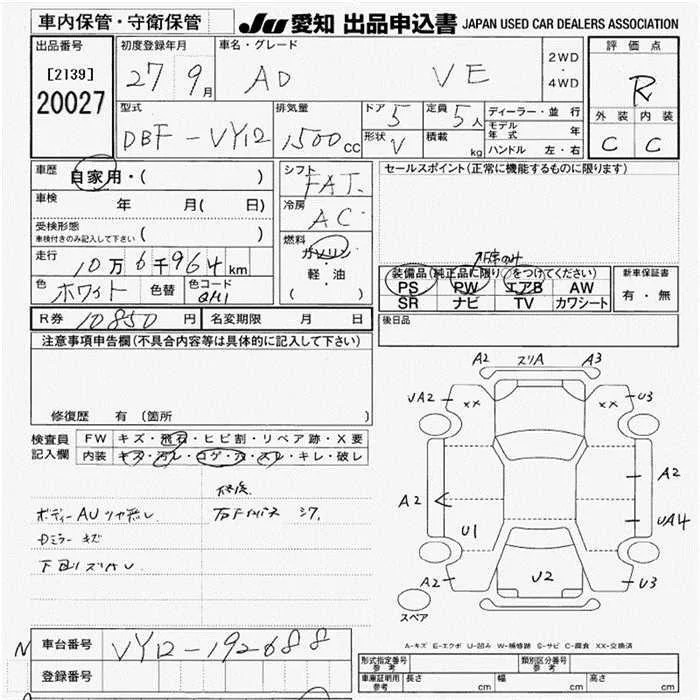 車内保管・守衛保管 JU 愛知 出品申込書 JAPAN USED CAR DEALERS ASSOCIATION
出品番号 初度登録年月 車名・グレード 評価点
[2139] 27 9月 AD VE 2WD・4WD R
20027
型式 排気量 ドア 5 定員 5人 ディーラー・並行 外装 内装
DBF-VY12 1500cc 形状 V 積載 kg モデル年式 年 C C
ハンドル 左・右
車歴 自家用・( ) シフト FAT. セールスポイント(正常に機能するものに限ります)
車検 年 月( 日) 冷房 AC
受検形態 車検付きのみ記入して下さい ( ) 燃料 ガソリン・軽油 ( )
走行 10万6千964km
装備品(純正品に限り○をつけてください) 新車保証書
色 ホワイト 色替 色コード QM1 PS PW エアB AW 有・無
SR ナビ TV カワシート
R券 10850円 名変期限 月 日 後日品
注意事項申告欄(不具合内容等は具体的に記入して下さい)
修復歴 有 (箇所 )
A2 スリA A3
UA2 XX XX U3
検査員記入欄 FW キズ・飛石・ヒビ割・リペア跡・X要
内装 キズ・汚レ・コゲ・穴・スレ・キレ・破レ
A2 A2
U1 UA4
修復
ボディーAU
Dミラー キズ
A2 U2 U3
スペア
A-キズ E-エクボ U-凹み W-補修跡 S-サビ C-腐食 XX-交換済
N 車台番号 VY12-192688
登録番号
形式指定番号 参考 類別区分番号 参考
車庫証明用 参考 長さ cm 幅 cm 高さ cm